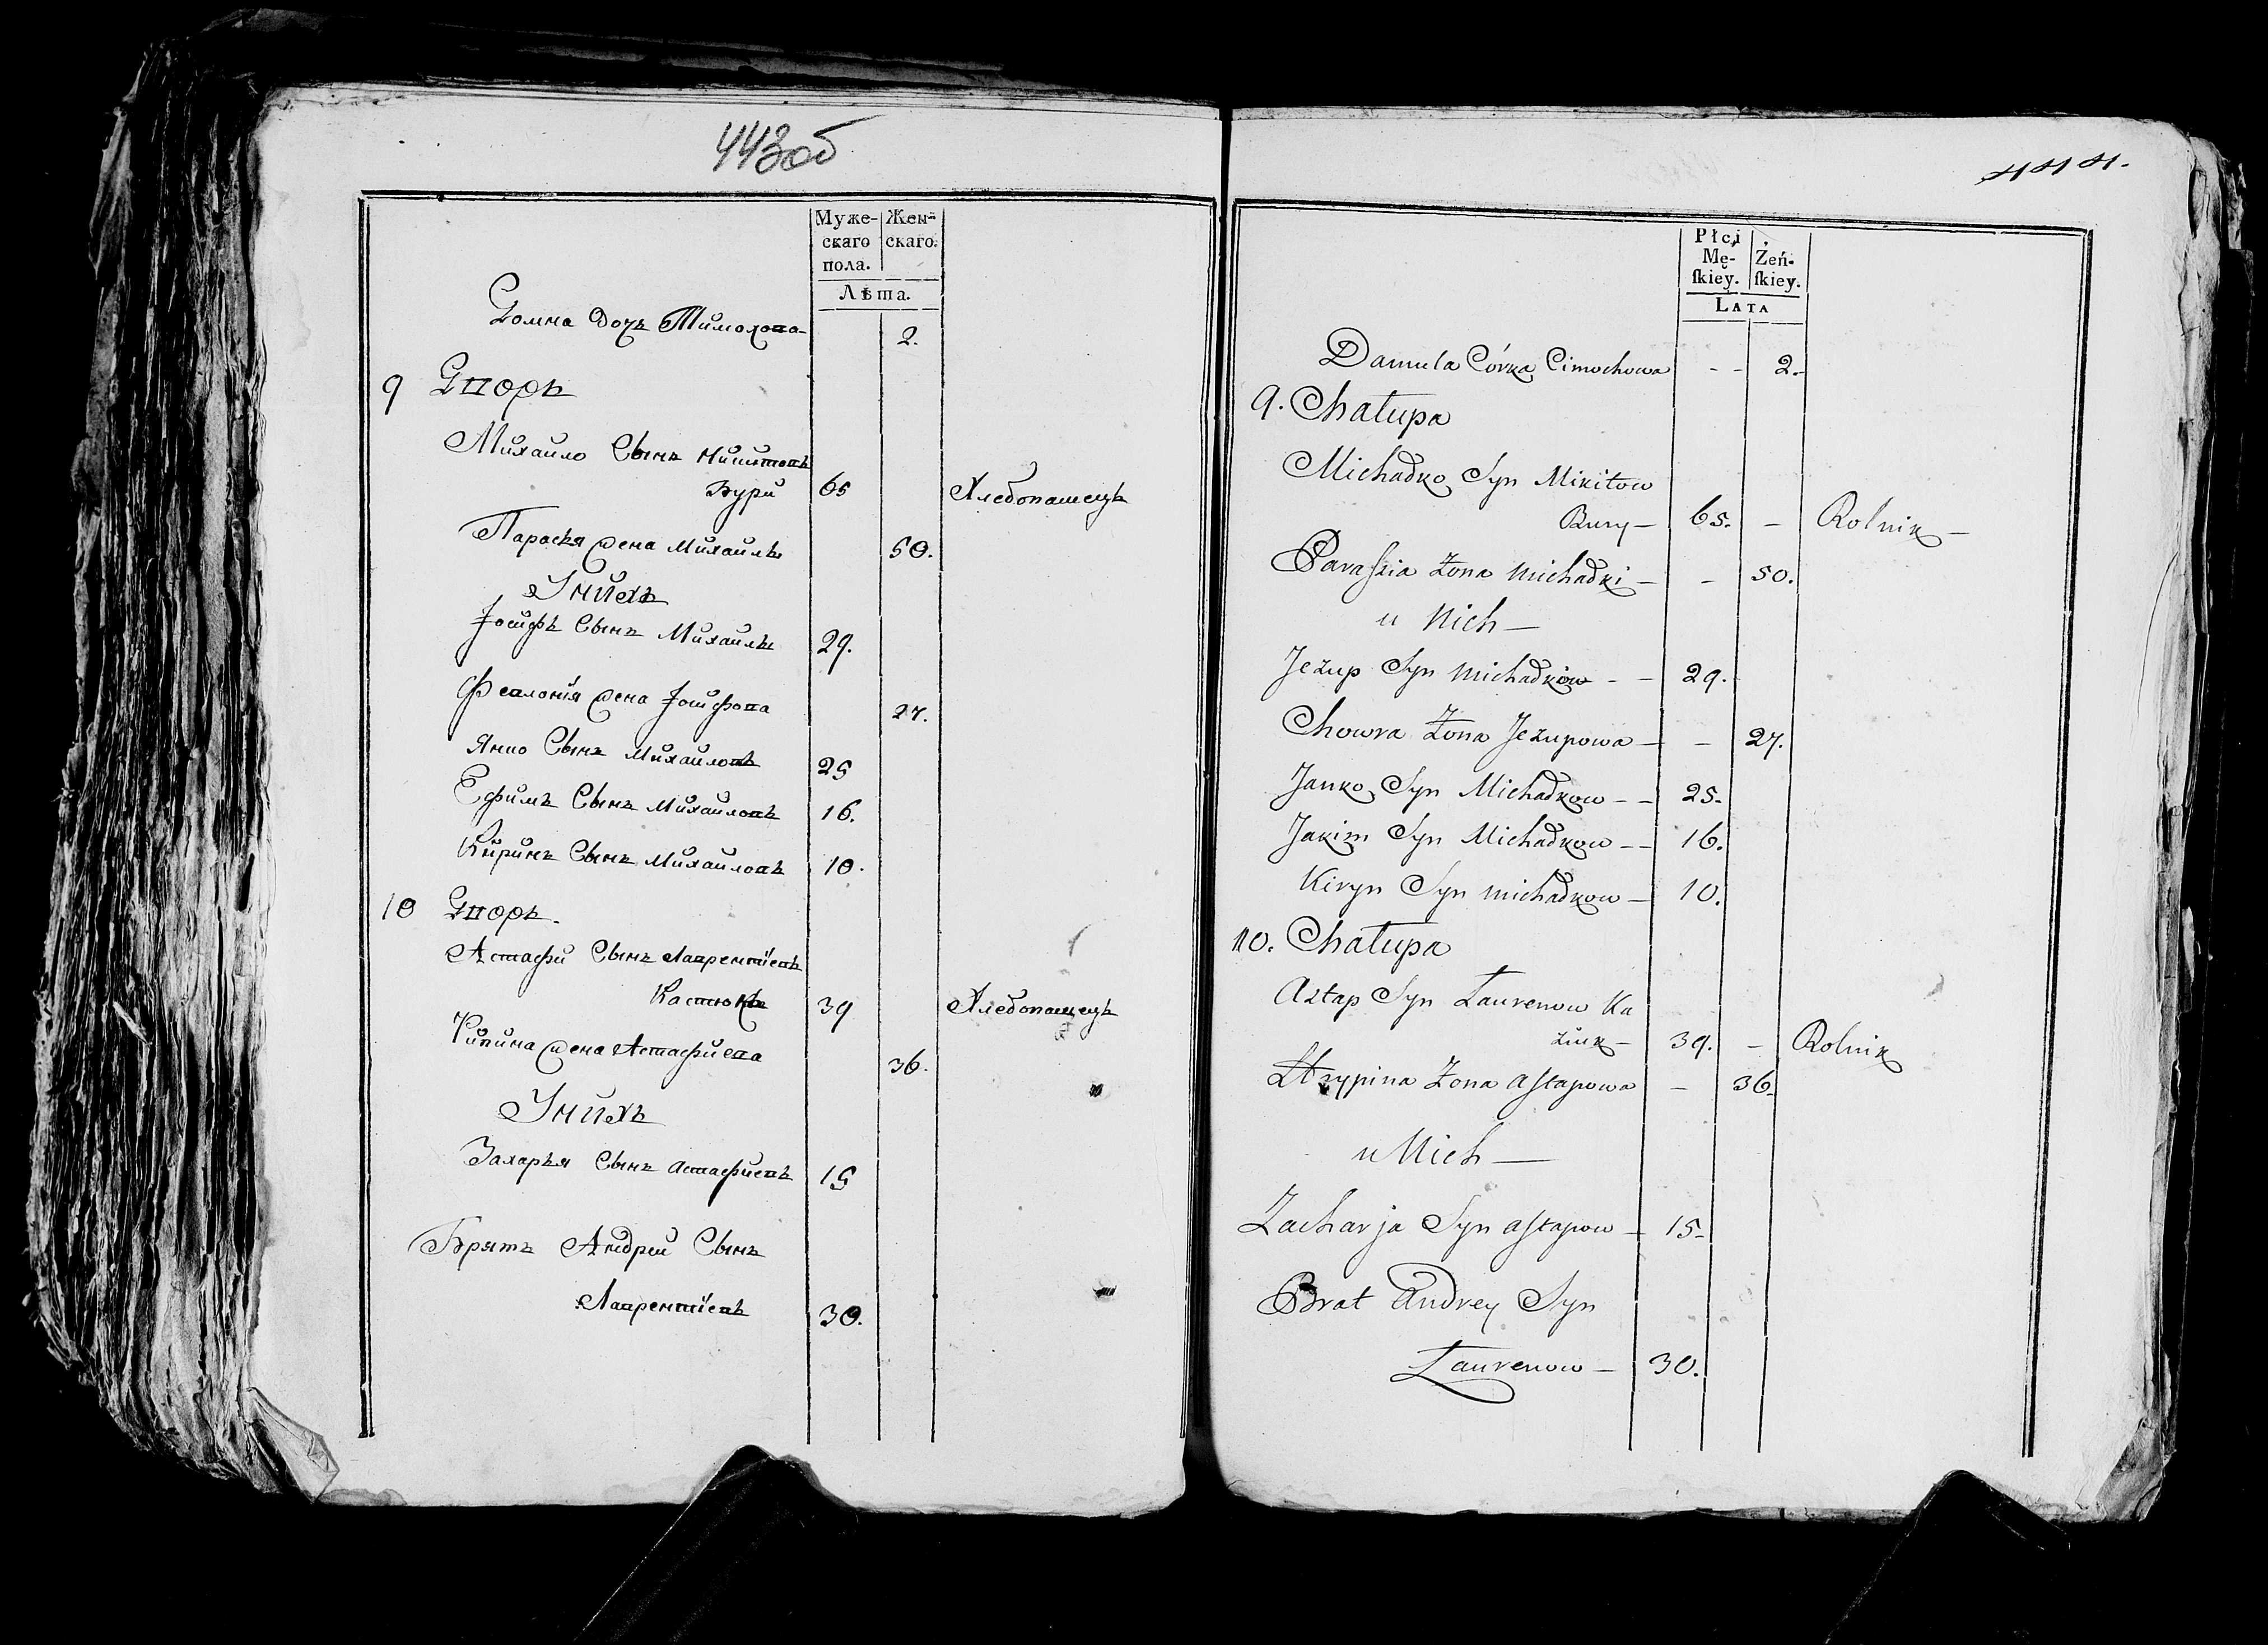 443об
Муже-
скаго
пола.
Жен-
скаго.
Лѣта.
Домна Дочь Тимохова 2.
9 Дворъ
Михайло Сынъ Никитовъ
Бури 65 Хлебопашецъ
Параскя Жена Михайлы 50.
У нихъ
Іосифъ Сынъ Михайлы 29.
Жена Іосифова 27.
Янко Сынъ Михайловъ 25
Ефимъ Сынъ Михайловъ 16.
Киринъ Сынъ Михайловъ 10.
10 Дворъ.
Астафи Сынъ Лаврентіевъ
Костюкъ 39 Хлебопашецъ
Жена Астафиева 36.
У нихъ
Захарья Сынъ Астафиевъ 15
Братъ Андрей Сынъ
Лаврентіевъ 30.
444.
Płci
Mę-
ſkiey.
Żeń-
ſkiey.
LATA
Damula Córka Cimochowa - - 2.
9. Chałupa
Michałko Syn Mikitow
Bury — 65. — Rolnik —
Paraſkia Żona Michałki — - 50.
u Nich —
Jezup Syn Michałkow - - 29.
Chowra Żona Jezupowa — - 27.
Janko Syn Michałkow - - 25.
Jakim Syn Michałkow - - 16.
Kiryn Syn Michałkow — 10.
10. Chałupa
Astap Syn Laurenow Ka
ziuk — 39. — Rolnik
Żona Aſtapowa — 36.
u Nich —
Zacharja Syn Aſtapow — 15-
Brat Andrey Syn
Laurenow — 30.